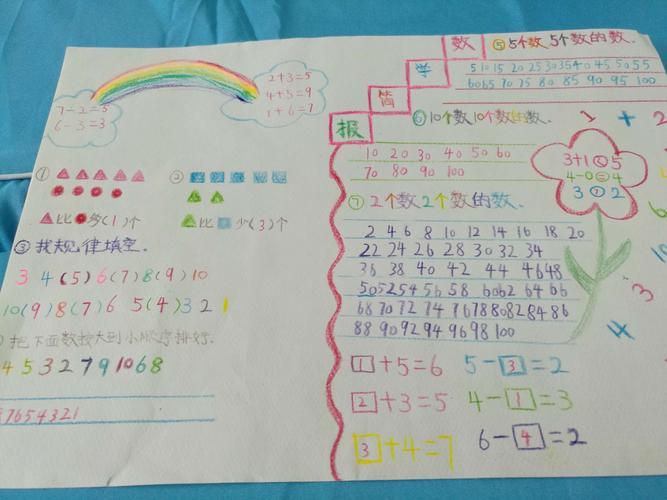 7-2=5
6-3=3
2+3=5
4+5=9
1+6=7
①
②
▲比●多(1)个
▲比■少(3)个
③找规律填空.
3 4(5)6(7)8(9)10
10(9)8(7)6 5(4)3 2 1
把下面数按大到小顺序排好.
4 5 3 2 7 9 10 6 8
7654321
数
学
简
报
⑤5个数5个数的数.
5 10 15 20 25 30 35 40 45 50 55
60 65 70 75 80 85 90 95 100
⑥10个数10个数的数.
10 20 30 40 50 60
70 80 90 100
⑦2个数2个数的数.
2 4 6 8 10 12 14 16 18 20
22 24 26 28 30 32 34
36 38 40 42 44 46 48
50 52 54 56 58 60 62 64 66
68 70 72 74 76 78 80 82 84 86
88 90 92 94 96 98 100
1+5=6
2+3=5
3+4=7
5-3=2
4-1=3
6-4=2
3+1<5
4-0=4
3>2
1 + 2
3
4